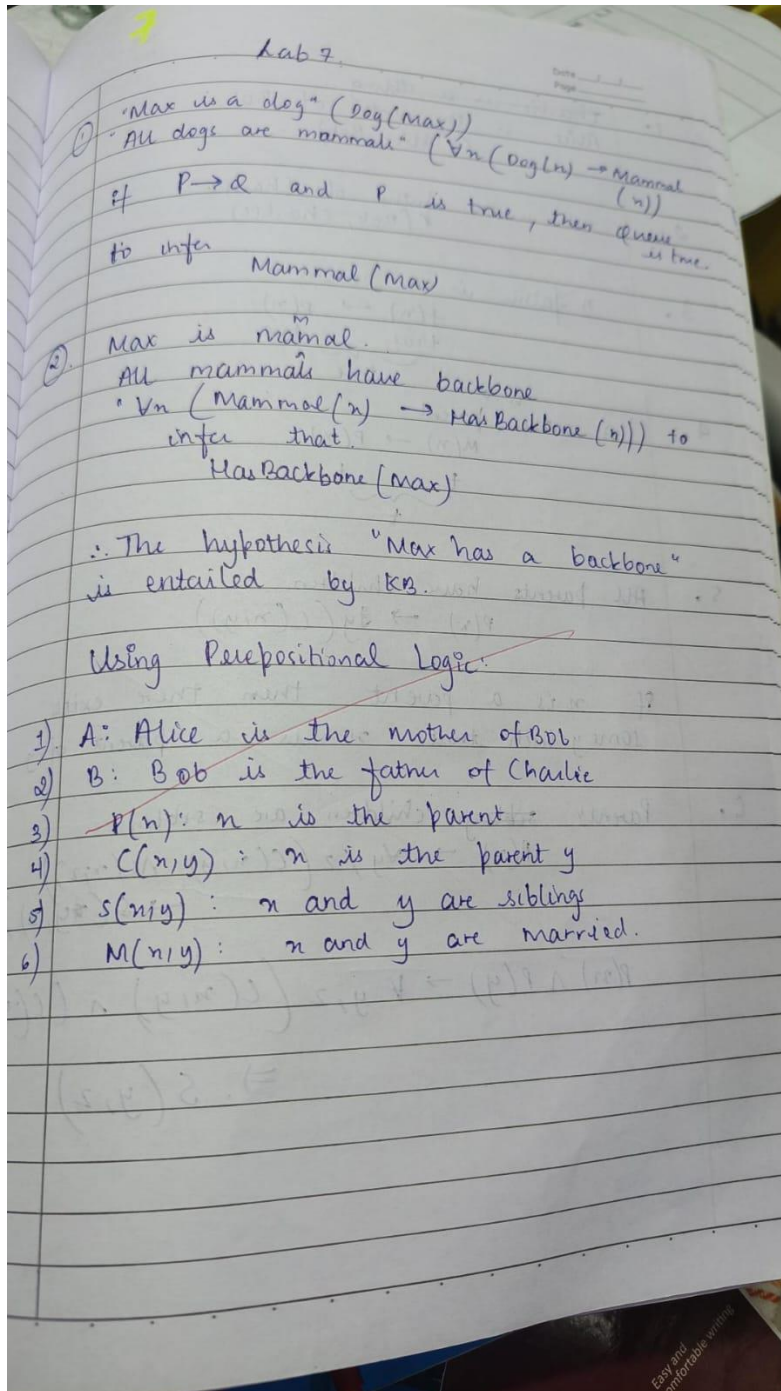 7
Lab 7.
Date
Page
① "Max is a dog" (Dog(Max))
"All dogs are mammals" (∀n (Dog(n) → Mammal (n))
if P→Q and P is true, then Queue is true.
to infer
Mammal (Max)
② Max is mammal.
All mammals have backbone
"∀n (Mammal(n) → HasBackbone (n))) to
infer that.
HasBackbone (Max)
∴ The hypothesis "Max has a backbone"
is entailed by KB.
Using Perepositional Logic:
1) A: Alice is the mother of Bob
2) B: Bob is the father of Charlie
3) P(n): n is the parent
4) C(n,y) : n is the parent y
5) S(n,y) : n and y are siblings
6) M(n,y) : n and y are married.
Easy and
comfortable writing